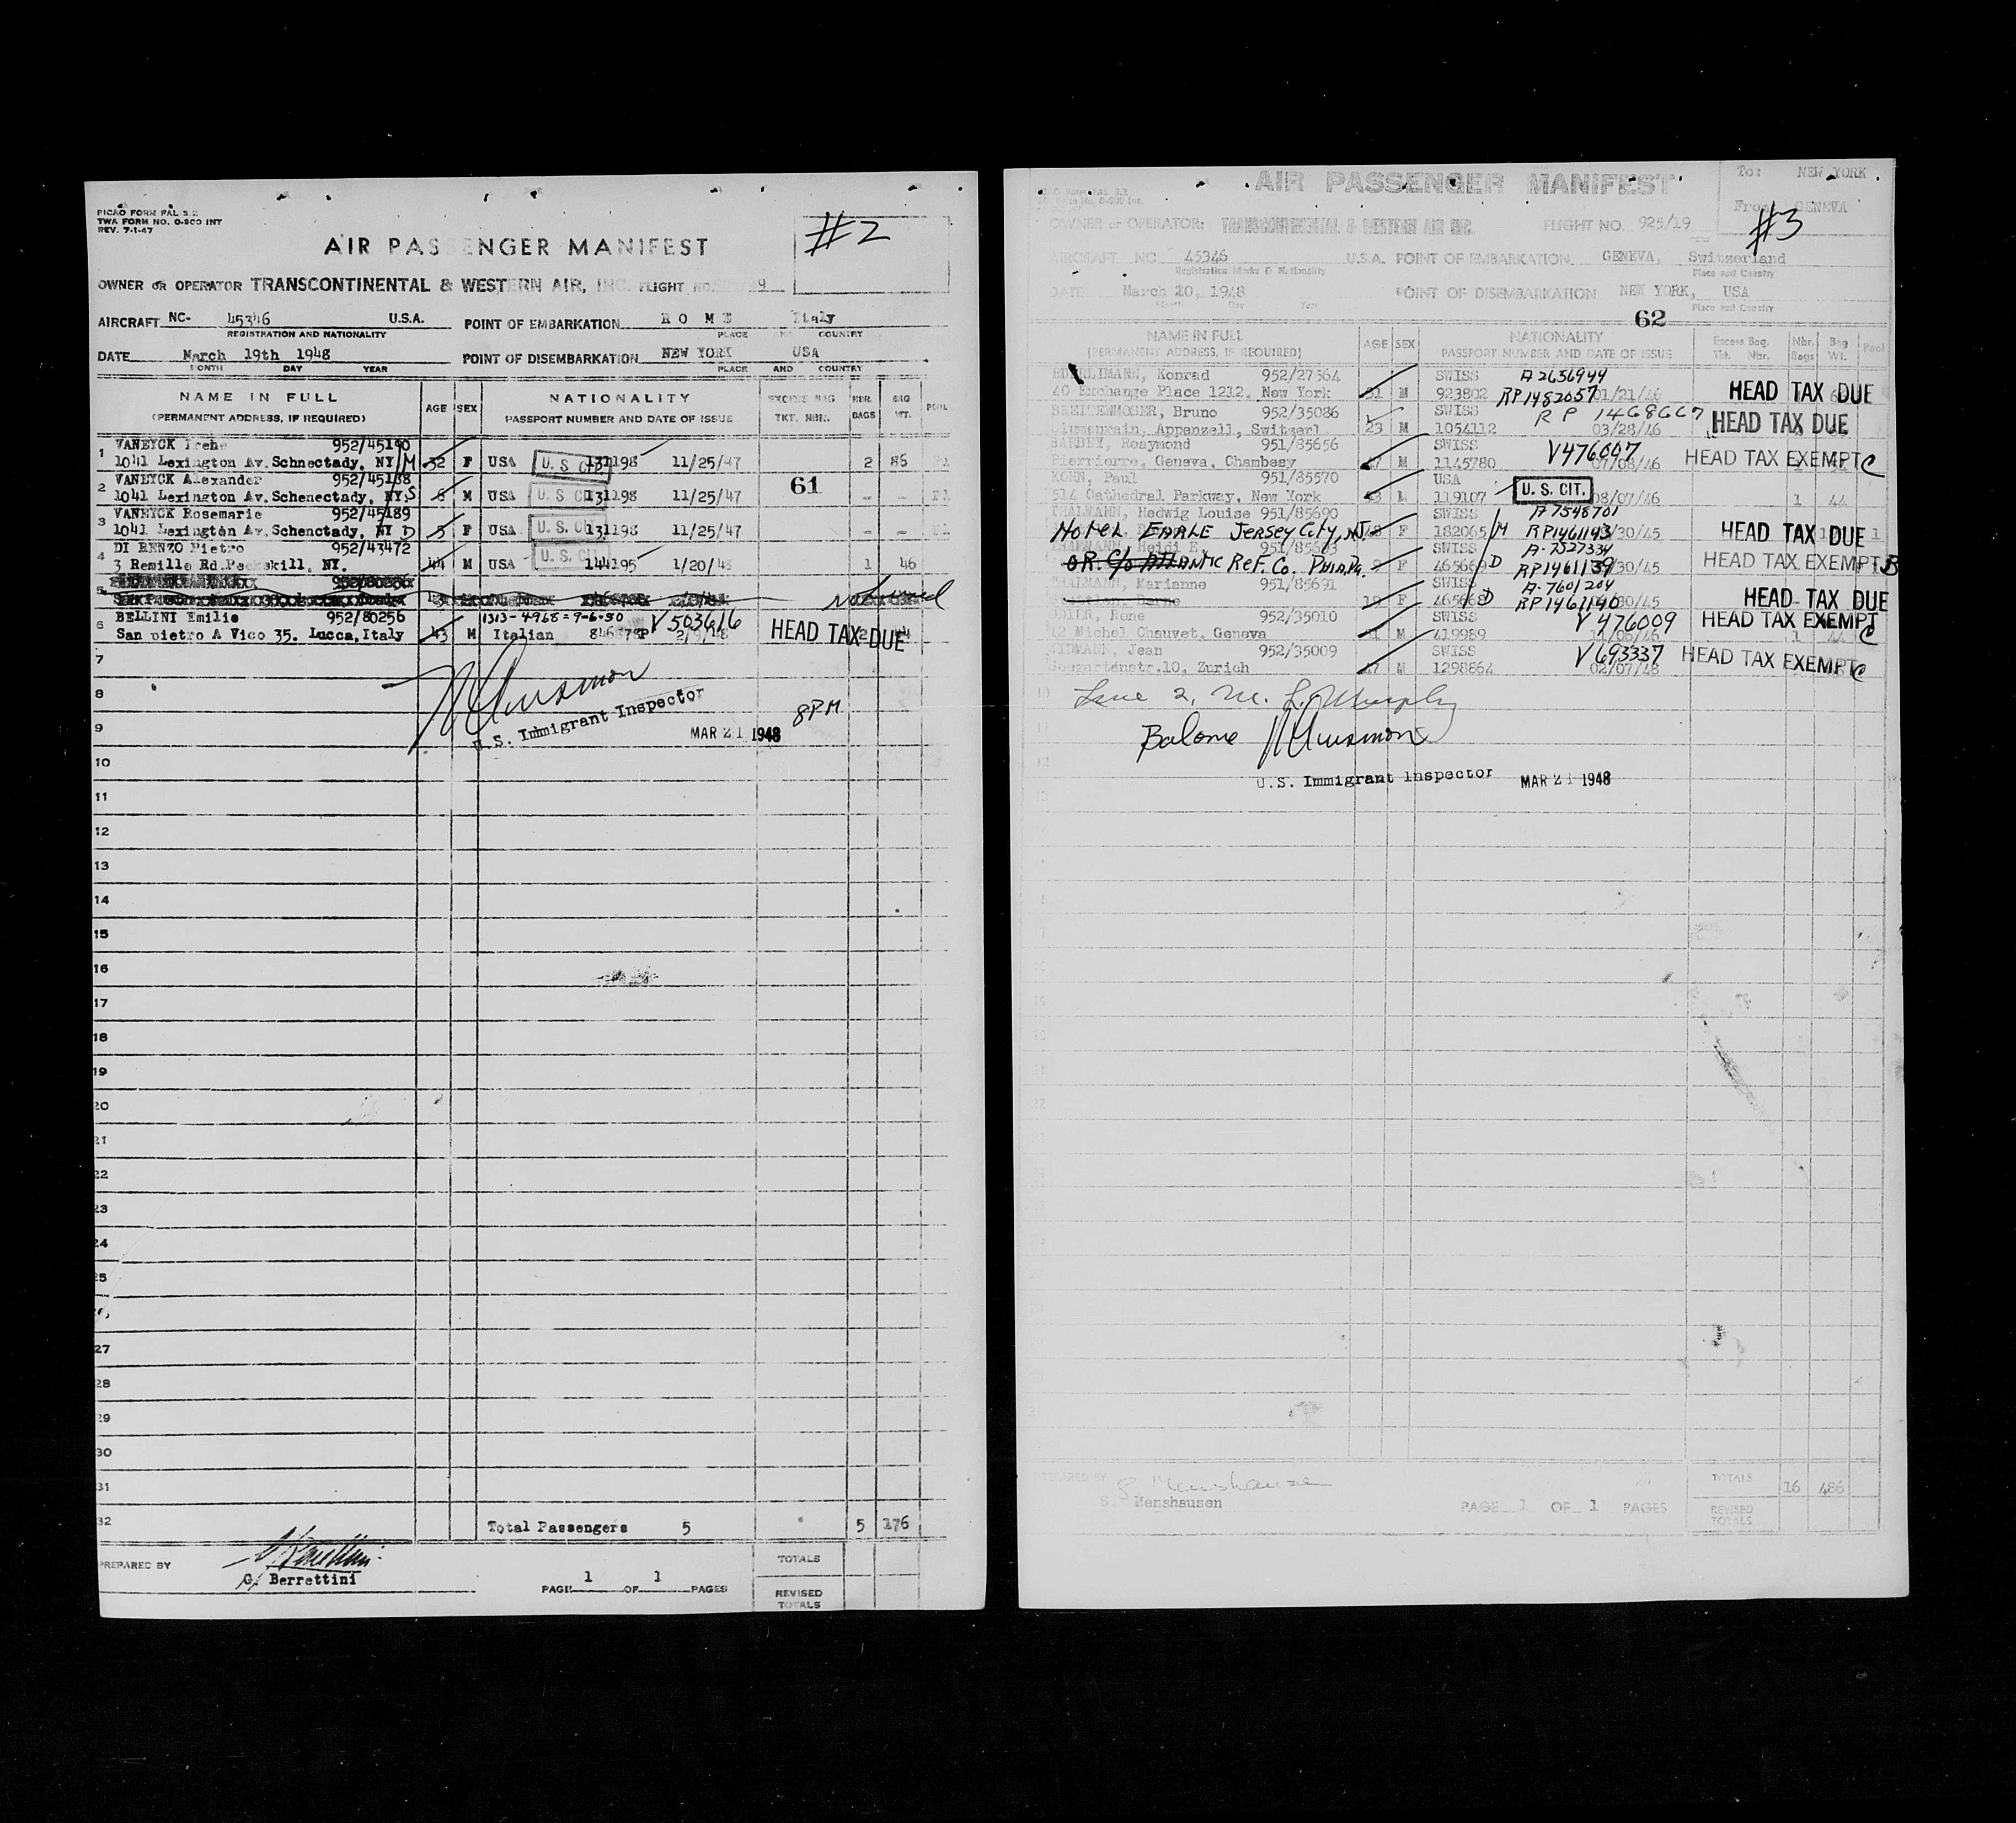 PICAO FORM PAL 3.2
TWA FORM NO. O-900 INT
REV. 7-1-47
#2
AIR PASSENGER MANIFEST
OWNER OR OPERATOR TRANSCONTINENTAL & WESTERN AIR, INC. FLIGHT NO. 9
AIRCRAFT NC- 45346 U.S.A. POINT OF EMBARKATION ROME Italy
REGISTRATION AND NATIONALITY PLACE COUNTRY
DATE March 19th 1948 POINT OF DISEMBARKATION NEW YORK USA
MONTH DAY YEAR PLACE AND COUNTRY
NAME IN FULL AGE SEX NATIONALITY EXCESS BAG NBR. BAG POOL
(PERMANENT ADDRESS, IF REQUIRED) PASSPORT NUMBER AND DATE OF ISSUE TKT. NBR. BAGS WT.
1 VANEYCK 952/45190
1041 Lexington Av. Schnectady, NY M 32 F USA U. S. CIT. 131198 11/25/47 2 86
2 VANEYCK Alexander 952/45188 61
1041 Lexington Av. Schenectady, NY S M USA U. S. CIT. 131198 11/25/47 - -
3 VANEYCK Rosemarie 952/45189
1041 Lexington Av. Schenctady, NY D 5 F USA U. S. CIT. 131198 11/25/47 - -
4 DI RENZO Pietro 952/43472
3 Remille Rd. Peekskill, NY. 44 M USA U. S. CIT. 144195 1/20/48 1 46
5
6 BELLINI Emilio 952/80256 1313-4968=9-6-50 V503616
San pietro A Vico 35. Lucca, Italy 43 M Italian HEAD TAX DUE 2
7
8
U.S. Immigrant Inspector 8PM
9 MAR 21 1948
10
11
12
13
14
15
16
17
18
19
20
21
22
23
24
25
27
28
29
30
31
32 Total Passengers 5 5 176
PREPARED BY TOTALS
G. Berrettini
PAGE 1 OF 1 PAGES REVISED
TOTALS
AIR PASSENGER MANIFEST To: NEW YORK
From: GENEVA
#3
OWNER or OPERATOR: TRANSCONTINENTAL & WESTERN AIR INC. FLIGHT NO. 925/19
AIRCRAFT NC 45346 U.S.A. POINT OF EMBARKATION GENEVA, Switzerland
Registration Marks & Nationality Place and Country
DATE March 20, 1948 POINT OF DISEMBARKATION NEW YORK, USA
Month Day Year Place and Country
62
NAME IN FULL AGE SEX NATIONALITY Excess Bag. Nbr. Bag Pool
(PERMANENT ADDRESS, IF REQUIRED) PASSPORT NUMBER AND DATE OF ISSUE Tkt. Nbr. Bags Wt.
Konrad 952/27364 SWISS A2636944
40 Exchange Place 1212, New York M 923802 RP1482057 01/21/46 HEAD TAX DUE
BREITENMOSER, Bruno 952/35086 SWISS RP 1468667
Blumenrain, Appenzell, Switzerl 23 M 1054112 03/28/46 HEAD TAX DUE
BARBEY, Roaymond 951/85656 SWISS V476007
Pierrierre, Geneva, Chambesy 47 M 1145780 07/08/46 HEAD TAX EXEMPT C
KOHN, Paul 951/85570 USA
514 Cathedral Parkway, New York M 119107 U. S. CIT. 08/07/46 1 44
THALMANN, Hedwig Louise 951/85690 SWISS A7548701
HOTEL EARLE JERSEY CITY, NJ F 182065 M RP1461143 /30/45 HEAD TAX DUE 1
THALMANN, Heidi E. SWISS A-7527334
OR. C/O ATLANTIC REF. CO. PHILA PA. F 465669 D RP1461139 /30/45 HEAD TAX EXEMPT B
THALMANN, Marianne 951/85691 SWISS A-7601204
19 F D RP1461140 /30/45 HEAD TAX DUE
ODIER, Rene 952/35010 SWISS V476009 HEAD TAX EXEMPT C
12 Michel Chauvet, Geneva M 419989 1 44
WIDMANN, Jean 952/35009 SWISS V693337 HEAD TAX EXEMPT C
Seegartenstr.10, Zurich 47 M 1298864 02/07/48
10 Line 2, M. L. Murphy
Balance
U.S. Immigrant Inspector MAR 21 1948
PREPARED BY TOTALS 16 486
S. Menshausen PAGE 1 OF 1 PAGES REVISED
TOTALS